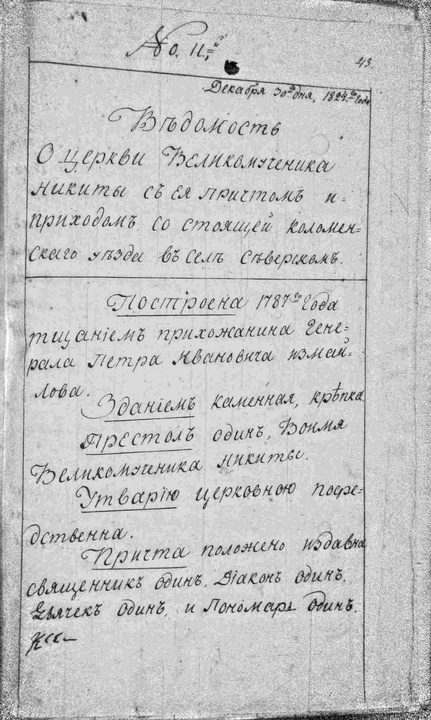 No. 11.й
43
Декабря 30го дня, 1824го Года
Вѣдомость
О церкви Великомученика
Никиты съ ея причтомъ и
приходомъ со стоящей коломен-
скаго уѣзда въ селѣ сѣверскомъ.
Построена 1787го Года
тщаніемъ прихожанина Гене-
рала Петра Ивановича измай-
лова.
Зданіемъ каменная, крѣпка
Престолъ одинъ, Воимя
Великомученика никиты.
Утварію церковною посре-
дственна.
Причта положено издавна
священникъ одинъ, Діаконъ одинъ,
Дьячекъ одинъ, и Пономарь Одинъ.